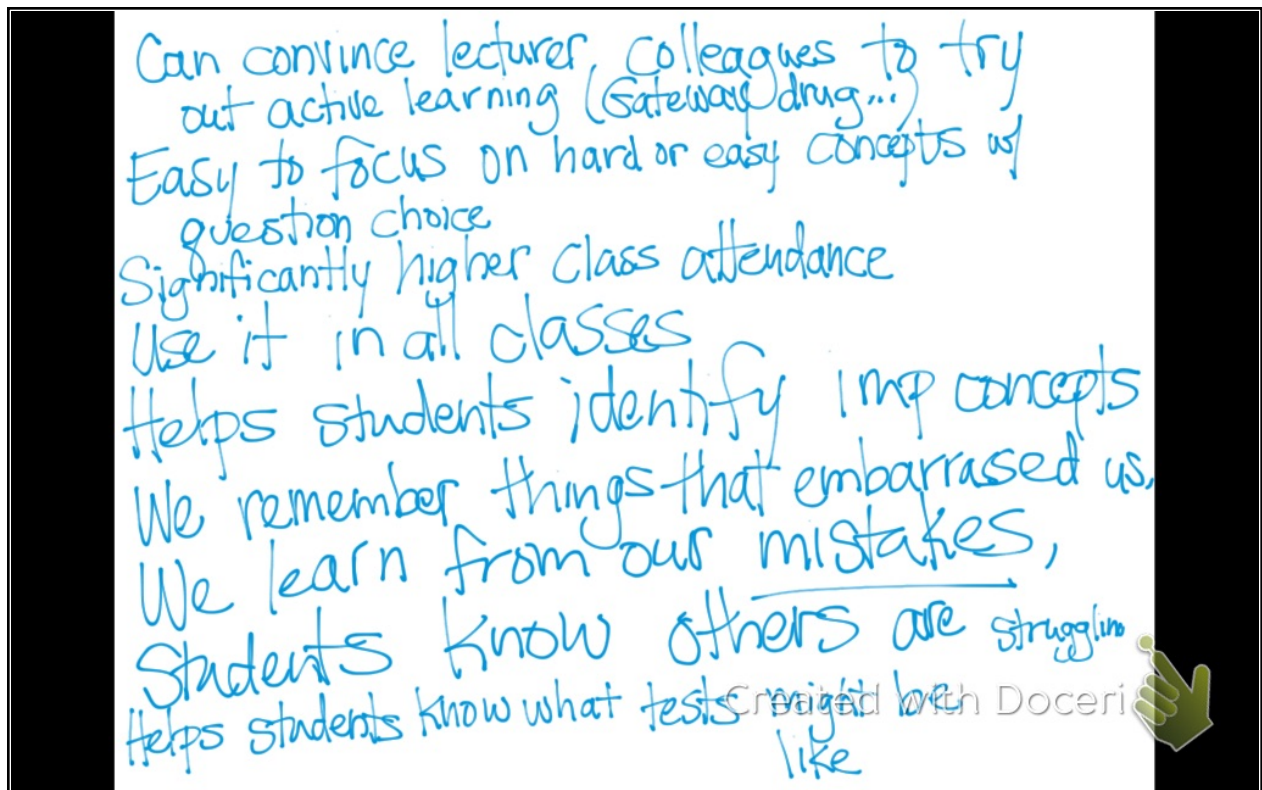 Can convince lecturer, colleagues to try
out active learning (Gateway drug...)
Easy to focus on hard or easy concepts w/
question choice
Significantly higher class attendance
Use it in all classes
Helps students identify imp concepts
We remember things that embarrassed us,
We learn from our mistakes,
Students know others are struggling
Helps students know what tests might be
like
Created with Doceri